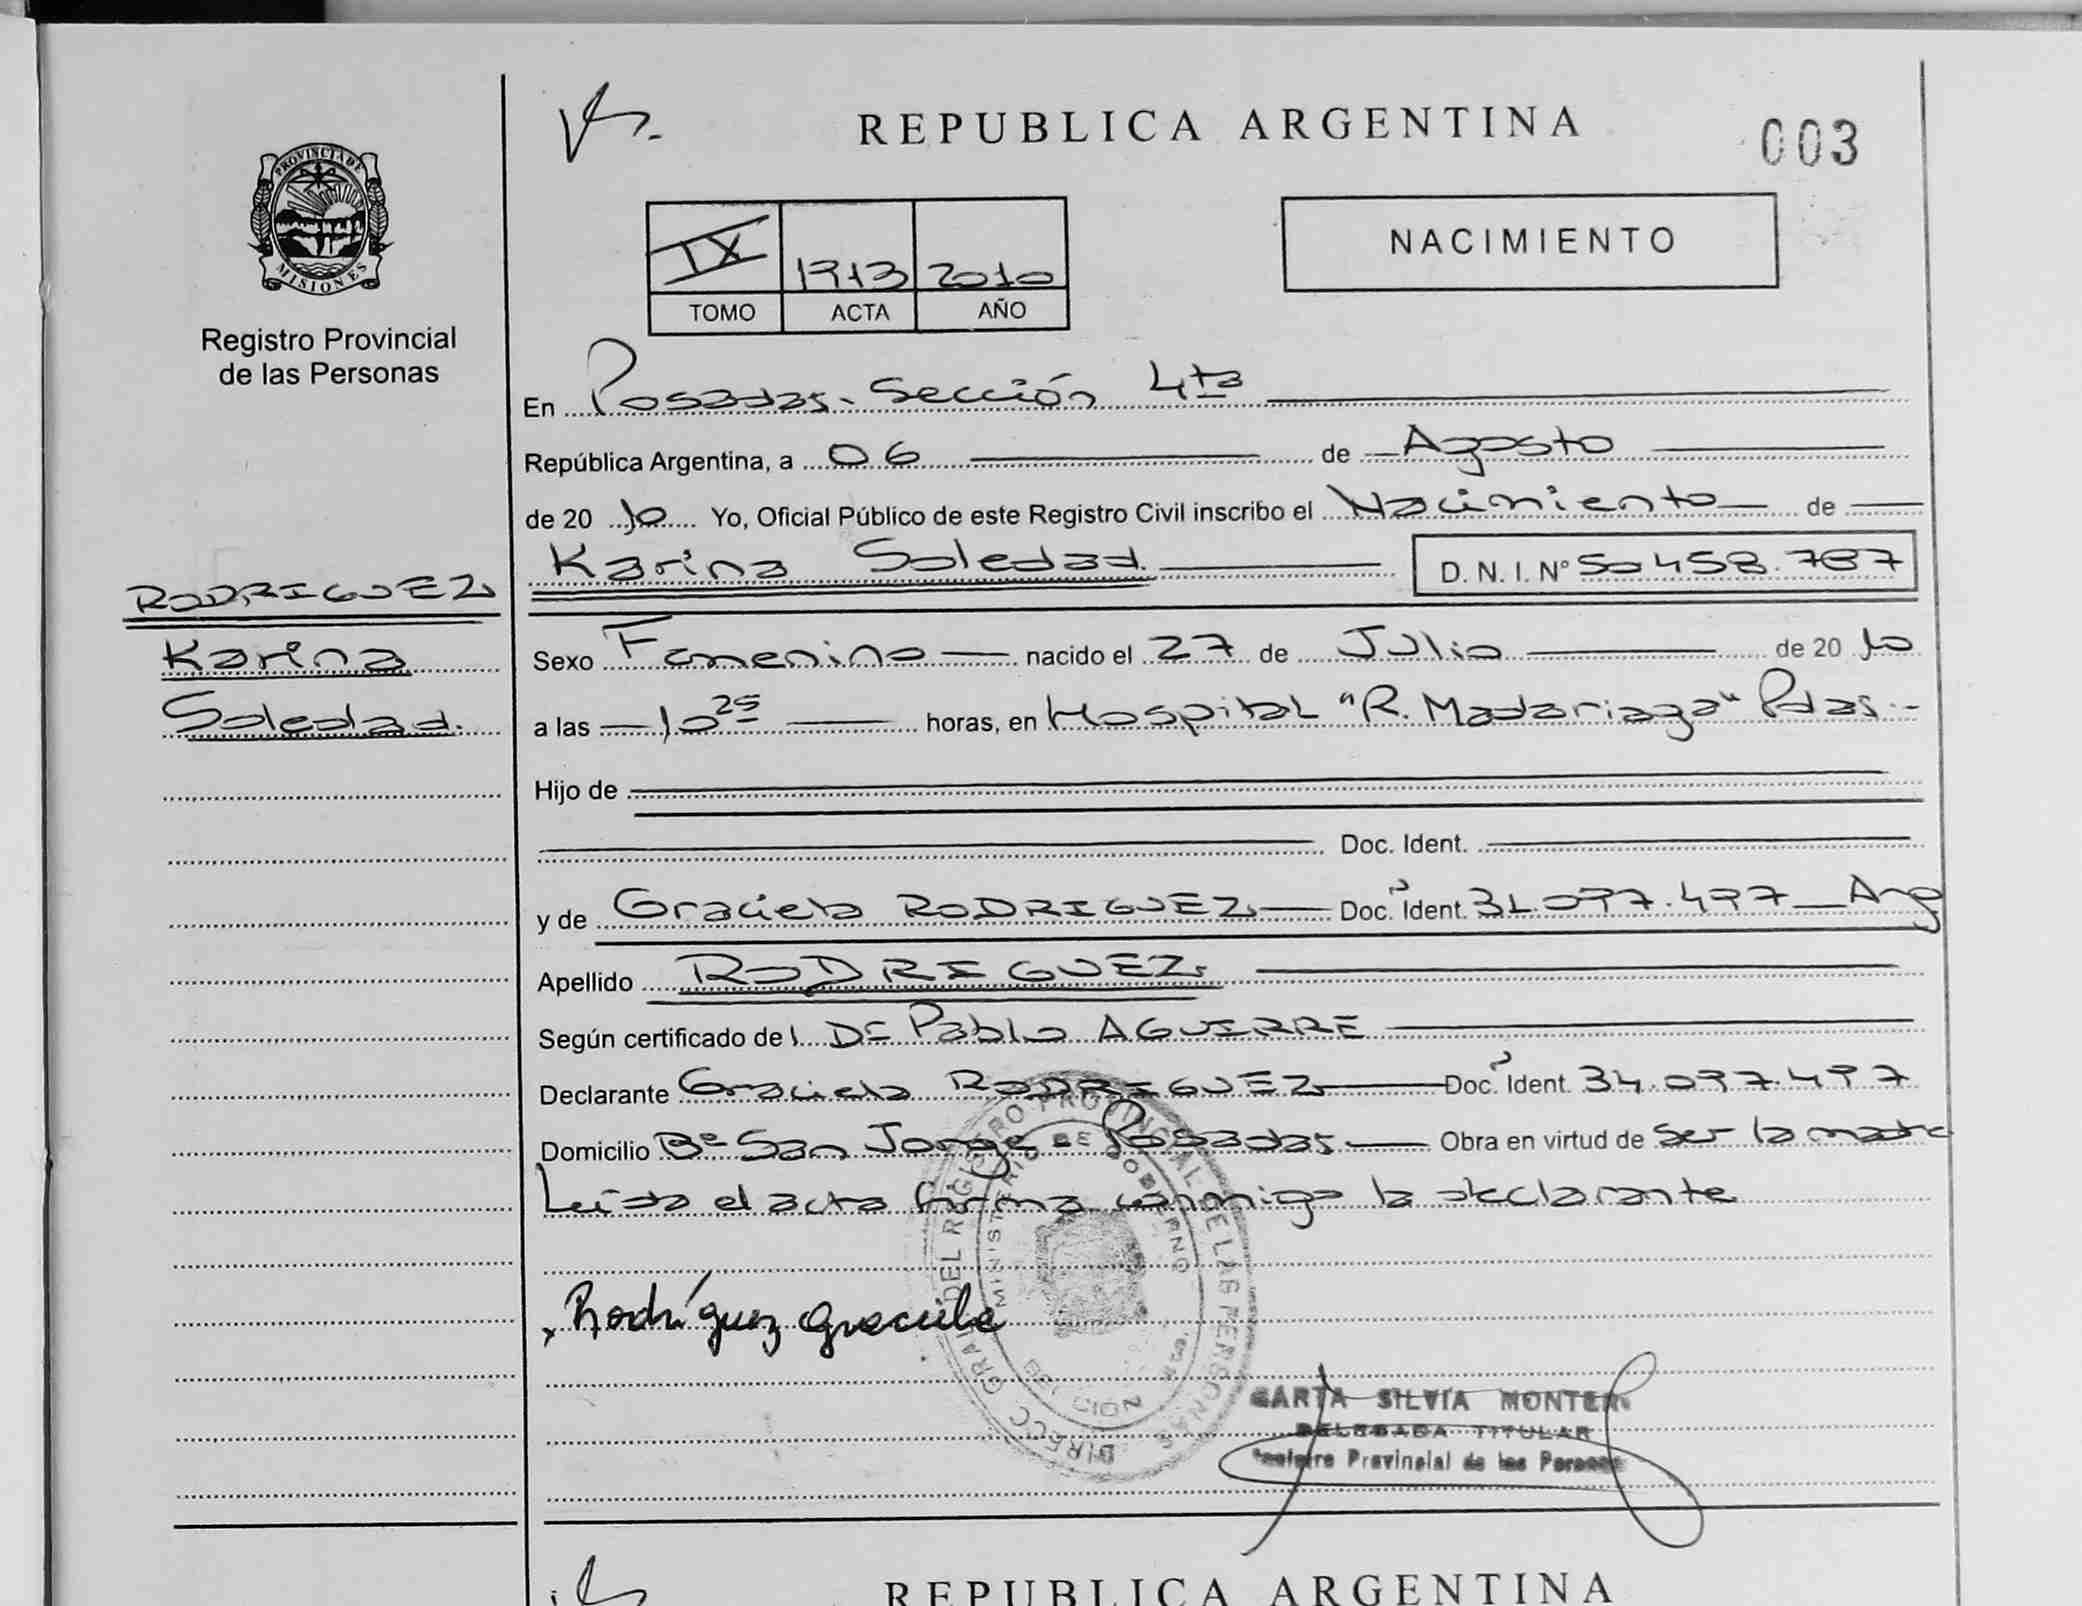 REPUBLICA ARGENTINA
003
PROVINCIA DE
MISIONES
Registro Provincial
de las Personas
IX 1913 2010
TOMO ACTA AÑO
NACIMIENTO
En Posadas - Sección 4ta
República Argentina, a 06 de Agosto
de 20 10 Yo, Oficial Público de este Registro Civil inscribo el Nacimiento de
Karina Soledad. D. N. I. Nº 50458.787
RODRIGUEZ
Karina
Soledad.
Sexo Femenino nacido el 27 de Julio de 20 10
a las 10 25 horas, en Hospital "R. Madariaga" Pdas.-
Hijo de
Doc. Ident.
y de Graciela RODRIGUEZ Doc. Ident. 097.497 Arg
Apellido RODRIGUEZ
Según certificado del Pablo AGUIRRE
Declarante Graciela RODRIGUEZ Doc. Ident. 34.097.497
Domicilio Bº San Jorge - Posadas Obra en virtud de ser la madre
Leída el acta firma conmigo la declarante
Rodríguez Graciela
DIRECC GRAL DEL REGISTRO PROVINCIAL DE LAS PERSONAS
MINISTERIO DE GOBIERNO
SILVIA MONTER
DELEGADA TITULAR
Provincial de las Personas
REPUBLICA ARGENTINA